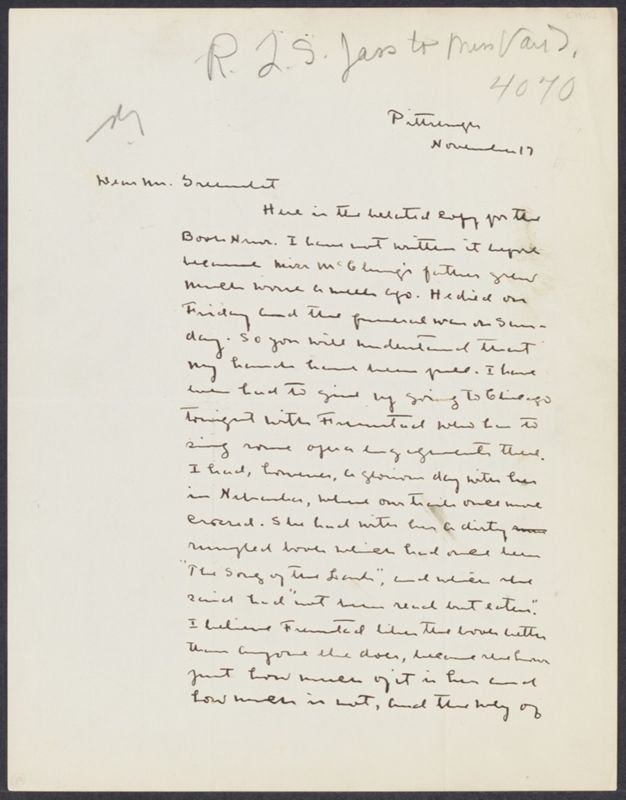 R. L. S. pass to Miss
4070
Pittsburgh
November 17
Dear Mr. Greenslet
Here is the belated copy for the
Book News. I have not written it before
because Miss McClung's father grew
much worse a week ago. He died on
Friday and the funeral was on Sun-
day. So you will understand that
my hands have been full. I have
even had to give up going to Chicago
tonight with Fremstad who has to
sing some opera engagements there.
I had, however, a glorious day with her
in Nebraska, where our trails once more
crossed. She had with her a dirty
rumpled book which had once been
"The Song of the Lark", and which she
said had "not been read but eaten".
I believe Fremstad likes the book better
than anyone else does, because she knows
just how much of it is her and
how much is not, and the way of